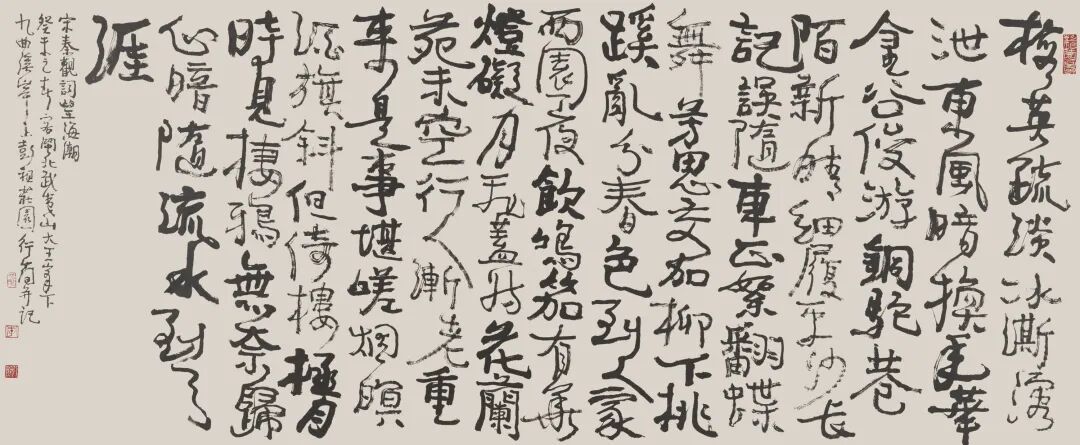 梅英疏淡冰澌溶
泄東風暗換年華
金谷俊游銅駝巷
陌新晴細履平沙長
記誤隨車正絮翻蝶
舞芳思交加柳下桃
蹊亂分春色到人家
西園夜飲鳴笳有華
燈礙月飛蓋妨花蘭
苑未空行人漸老重
來是事堪嗟烟暝
酒旗斜但倚樓極目
時見棲鴉無奈歸
心暗隨流水到天
涯
宋秦觀詞望海潮
癸未之春客閩北武夷山大王峰下
九曲溪岸彭祖莊園行者并記